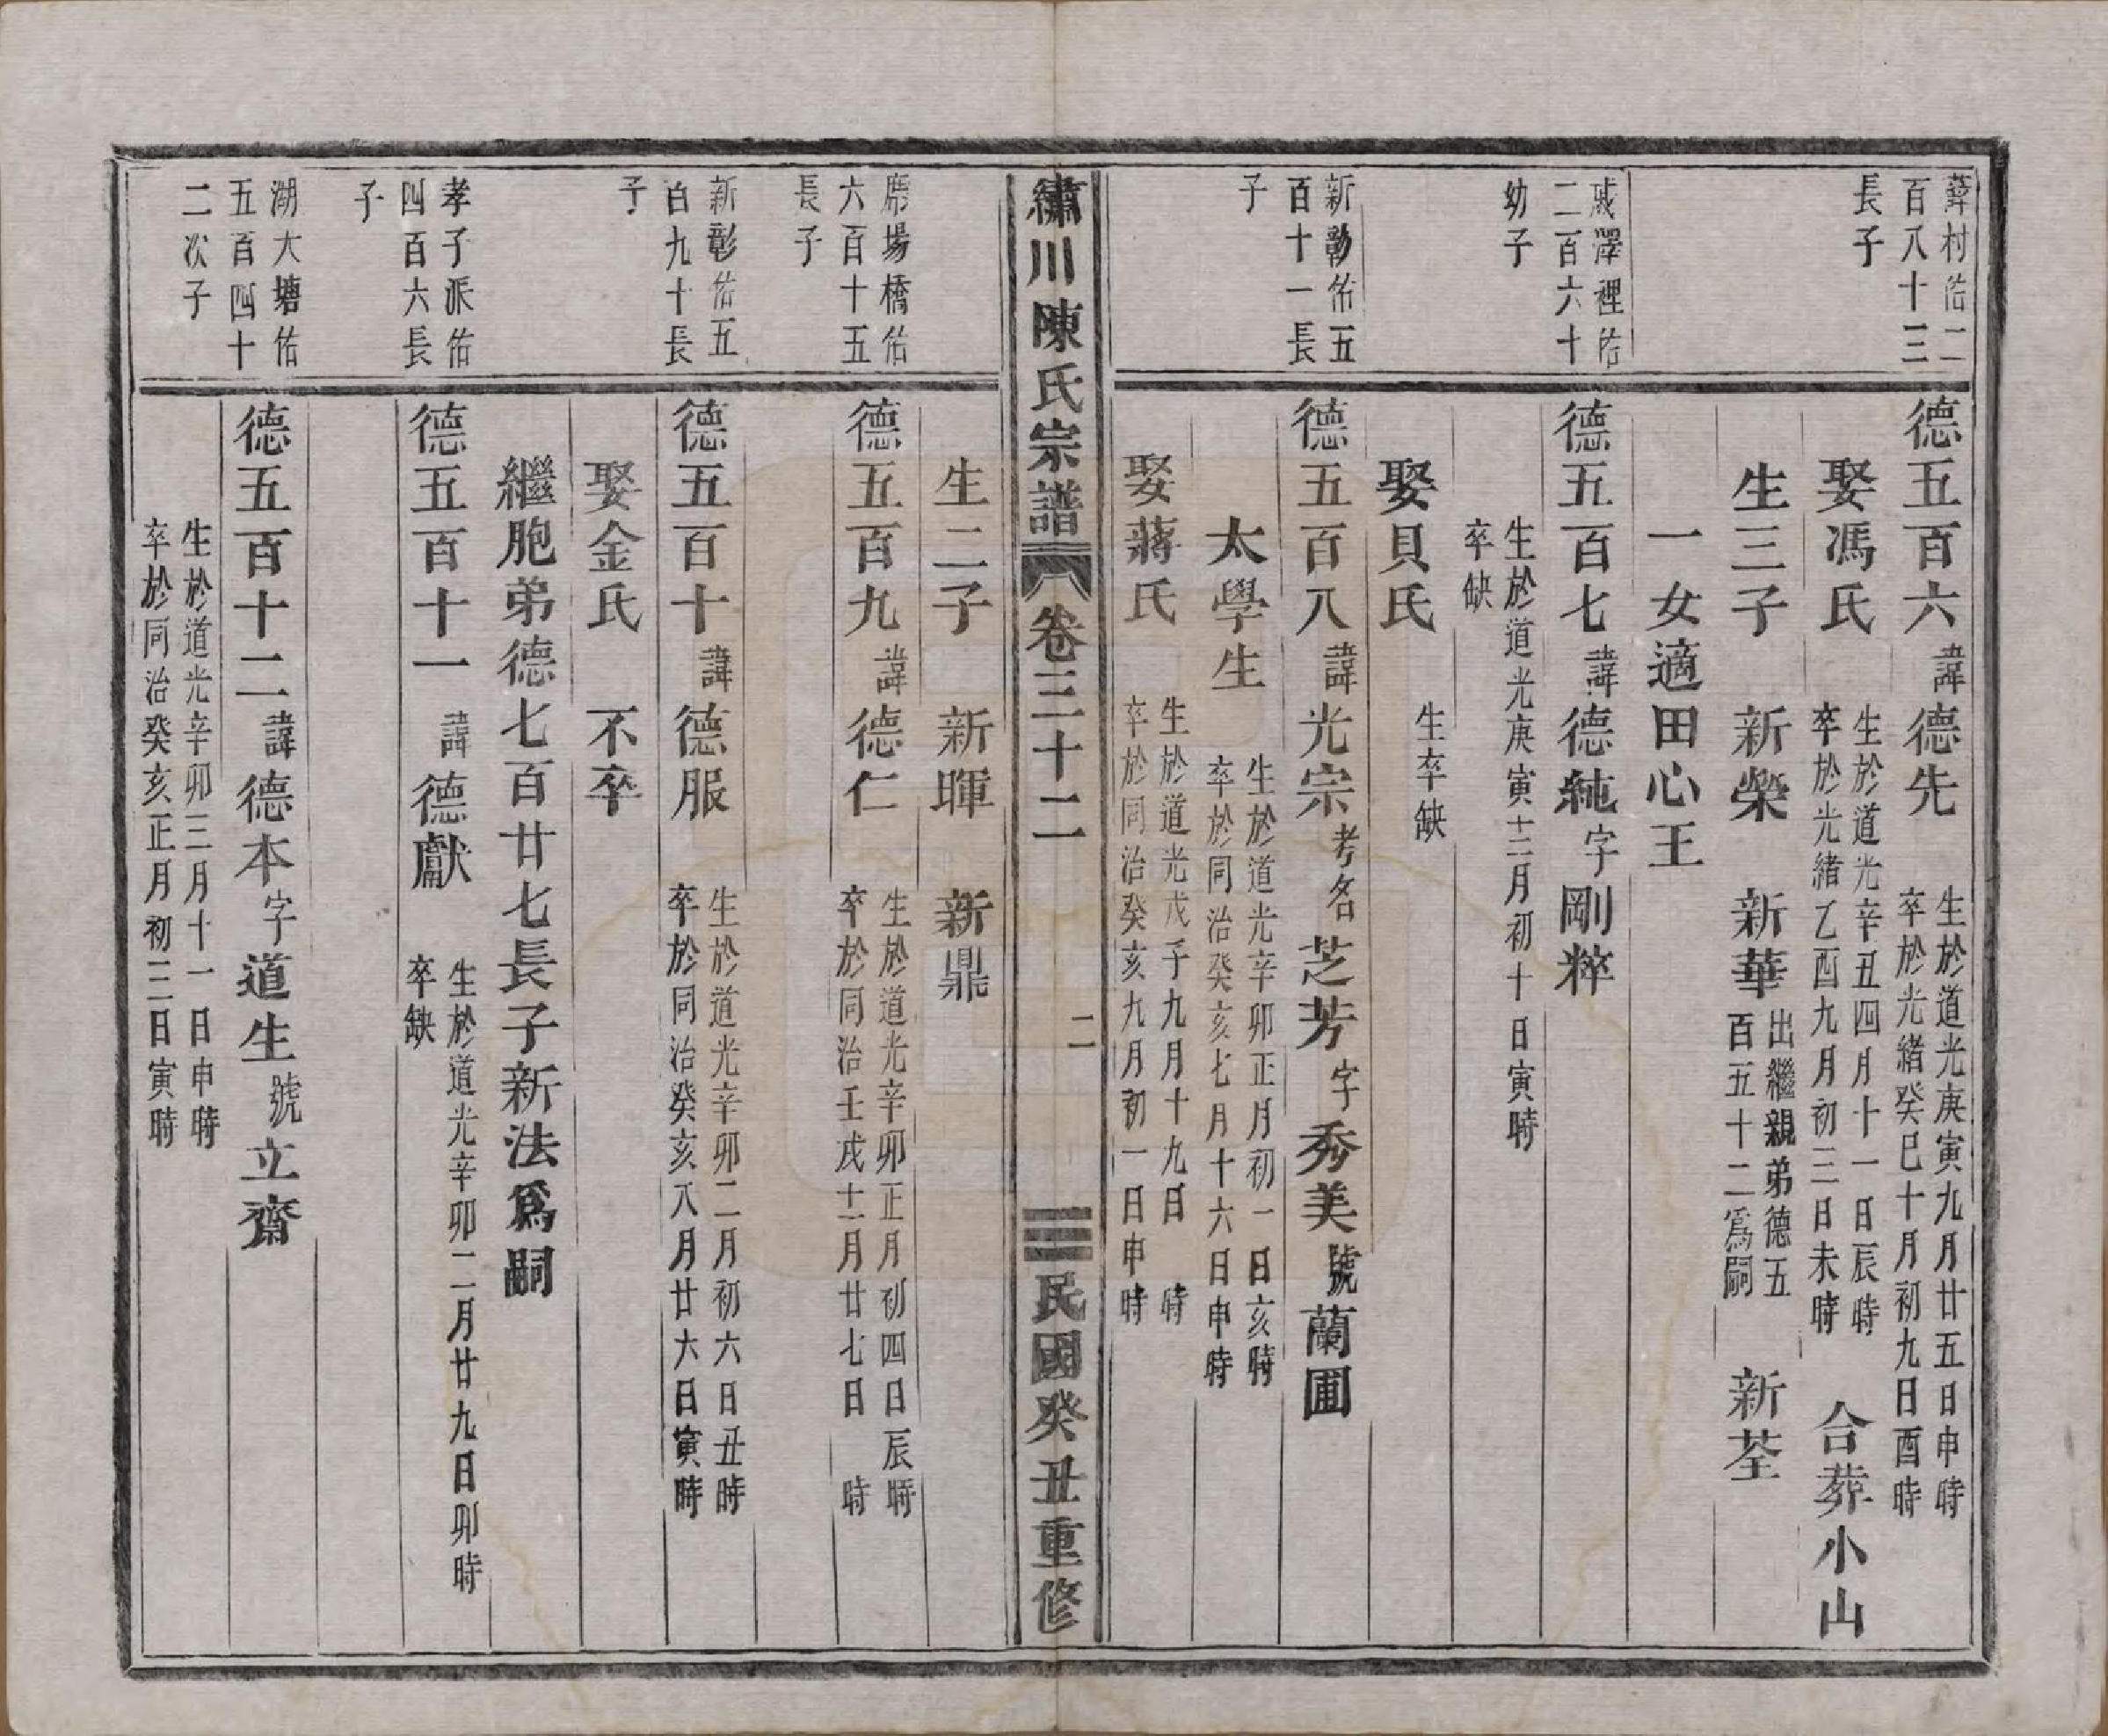 村佑二
百八十三
長子
德五百六諱德先
生於道光庚寅九月廿五日申時
卒於光緒癸巳十月初九日酉時
娶馮氏
生於道光辛丑四月十一日辰時
卒於光緒乙酉九月初三日未時
合葬小山
生三子 新榮 新華
出繼親弟德五
百五十二為嗣
新荃
一女適田心王
戚澤裡佑
二百六十
幼子
德五百七諱德純字剛粹
生於道光庚寅十二月初十日寅時
卒缺
娶貝氏
生卒缺
新勤佑五
百十一長
子
德五百八諱光宗考名芝芳字秀美號蘭圃
太學生
生於道光辛卯正月初一日亥時
卒於同治癸亥七月十六日申時
娶蔣氏
生於道光戊子九月十九日 時
卒於同治癸亥九月初一日申時
繡川陳氏宗譜 卷三十二 二 民國癸丑重修
生二子 新暉 新鼎
場橋佑
六百十五
長子
德五百九諱德仁
生於道光辛卯正月初四日辰時
卒於同治壬戌十二月廿七日 時
新彰佑五
百九十長
子
德五百十諱德服
生於道光辛卯二月初六日丑時
卒於同治癸亥八月廿六日寅時
娶金氏 不卒
繼胞弟德七百廿七長子新法爲嗣
孝子派佑
四百六長
子
德五百十一諱德獻
生於道光辛卯二月廿九日卯時
卒缺
湖大塘佑
五百四十
二次子
德五百十二諱德本字道生號立齋
生於道光辛卯三月十一日申時
卒於同治癸亥正月初三日寅時